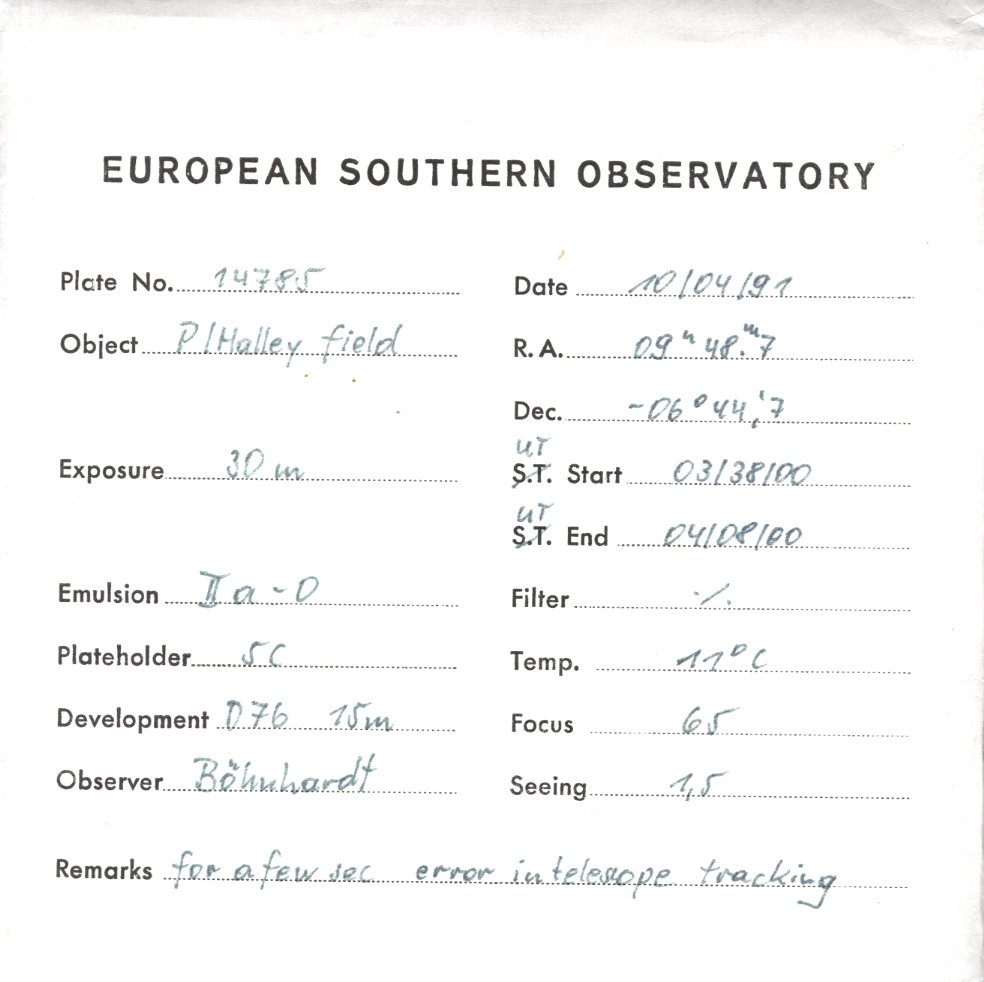 EUROPEAN SOUTHERN OBSERVATORY
Plate No. 14785 Date 10/04/91
Object P/Halley field R.A. 09h 48.m7
Dec. -06° 44,'7
UT
Exposure 30 m S.T. Start 03/38/00
UT
S.T. End 04/08/00
Emulsion IIa-O Filter ./.
Plateholder 5C Temp. 11°C
Development D76 15m Focus 65
Observer Böhnhardt Seeing 1,5
Remarks for a few sec error in telescope tracking